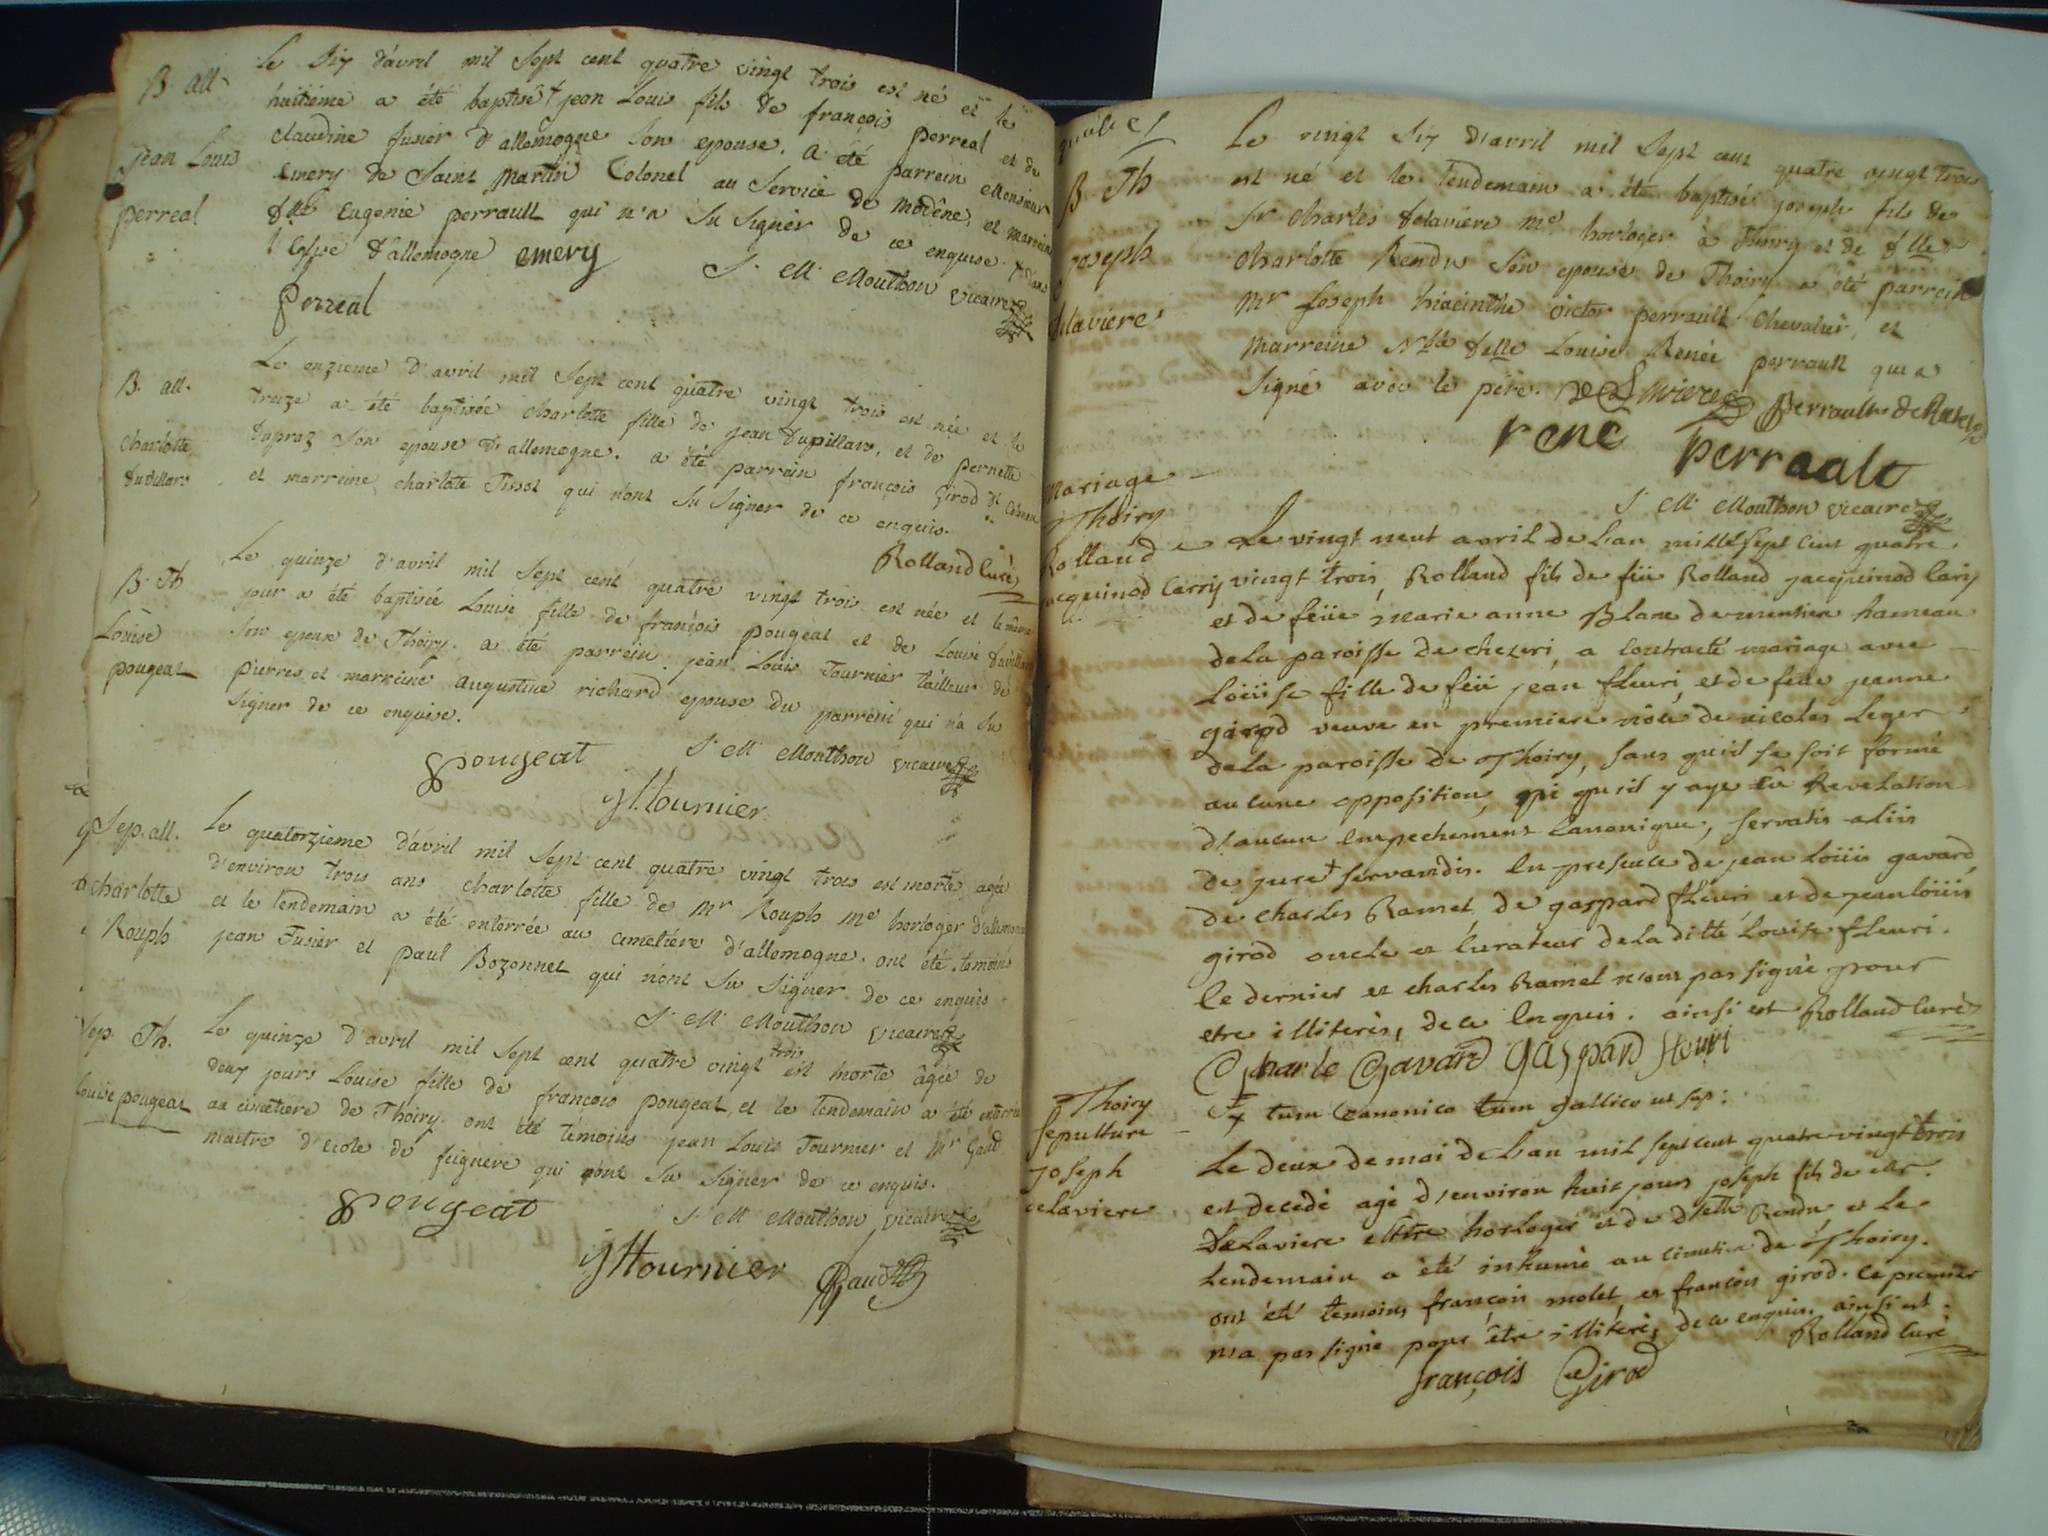 B. all.
jean Louis
perreal
Le Six d'avril mil Sept cent quatre vingt trois est né et le
huitiéme a été baptisé † jean Louis fils de françois perreal et de
claudine fusier d'allemogne son epouse. a été parrein Monsieur
emery de Saint Martin Colonel au Service de Modêne, et marreine
dlle Eugenie perrault qui n'a Su Signer de ce enquise. † dans
l'Eglise d'allemogne emery J. M. Mouthon vicaire
Perreal
B. all.
charlotte
dupillars
Le onzieme d'avril mil Sept cent quatre vingt trois est née et le
treize a été baptisée charlotte fille de jean dupillars, et de pernette
dupraz Son epouse d'allemogne. a été parrein françois girod de
et marreine charlotte Tissot qui n'ont Su Signer de ce enquis.
Rolland Curé
B. Th
Louise
pougeat
Le quinze d'avril mil Sept cent quatre vingt trois est née et le même
jour a été baptisée Louise fille de françois pougeat et de Louise
Son epouse de Thoiry. a été parrein jean Louis Tournier tailleur de
pierres, et marreine augustine richard epouse du parrein qui n'a Su
Signer de ce enquise.
Pougeat J. M. Mouthon vicaire
Tournier
Sep. all.
charlotte
Rouph
Le quatorzieme d'avril mil Sept cent quatre vingt trois est morte agée
d'environ trois ans charlotte fille de Mr Rouph Me horloger d'allemogne
et le lendemain a été enterrée au cimetiére d'allemogne. ont été témoins
jean Fusier et paul Bozonnet qui n'ont Su Signer de ce enquis
J. M. Mouthon vicaire
Sep. Th.
Louise pougeat
Le quinze d'avril mil Sept cent quatre vingt trois est morte âgée de
deux jours Louise fille de françois pougeat, et le lendemain a été enterrée
au cimetiere de Thoiry. ont été témoins jean Louis Tournier et Mr Gaud
maitre d'ecole de feignere qui n'ont Su Signer de ce enquis.
Pougeat J. M. Mouthon vicaire
Tournier Gaud
B. Th
joseph
delaviere
Le vingt Six d'avril mil Sept cent quatre vingt trois
est né et le lendemain a été baptisé joseph fils de
Sr charles delaviere me horloger à Thoiry et de dlle
charlotte Rendu Son epouse de Thoiry a été parrein
Mr Joseph hiacinthe victor perrault Chevalier, et
marreine Nble delle Louise Renée perrault qui a
Signé avec le père. De Laviere perrault de
rené Perrault
J. M. Mouthon vicaire
Mariage
Thoiry
Rolland
jacquinod Carry
Le vingt neuf avril de l'an mille sept cent quatre
vingt trois, Rolland fils de feü Rolland jacquinod Cary
et de feüe marie anne Blanc de mention hameau
de la paroisse de chezeri, a contracté mariage avec
Loüise fille de feü jean fleuri, et de feüe jeanne
girod veuve en premiere nôce de nicolas Leger
de la paroisse de Thoiry, sans qu'il se soit formé
aucune opposition, ni qu'il y aye eû Revelation
d'aucun Empechement Canonique, servatis aliis
de jure† servandis. En presence de jean loüis gavard
de charles Ramel, de gaspard fleuri et de jean loüis
girod oncle et Curateur de la ditte Louise fleuri.
le dernier et charles Ramel n'ont pas signé pour
etre illiterés, de ce Enquis. ainsi est Rolland Curé
Charle Gavard Gaspard fleuri
† tum Canonico tum gallico ut sup:
Thoiry
sepulture
joseph
delaviere
Le deux de mai de l'an mil sept cent quatre vingt trois
est decedé agé d'environ huit jours joseph fils de mr.
Delaviere Mtre horloger et de delle Rendu et Le
Lendemain a été inhumé au cimetiere de Thoiry.
ont été temoins françois molet et françois girod. Ce premier
n'a pas signé pour être illiteré, de ce enquis. ainsi est.
Rolland Curé
françois Girod